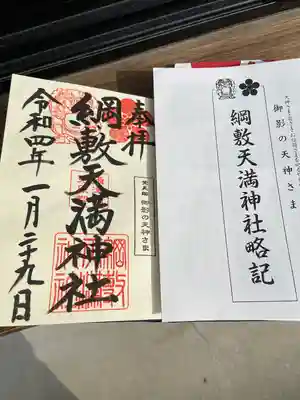 奉拝
綱敷天満神社
令和四年一月二十九日
御影の天神さま
御影の天神さま
綱敷天満神社略記